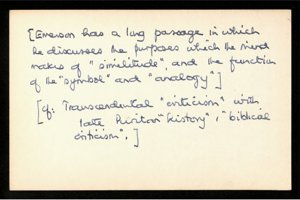 [Emerson has a long passage in which
he discusses the purposes which the mind
makes of "similitude", and the function
of the "symbol" and "analogy"]
[cf. Transcendental "criticism" with
late Puritan "history", "biblical
criticism".]